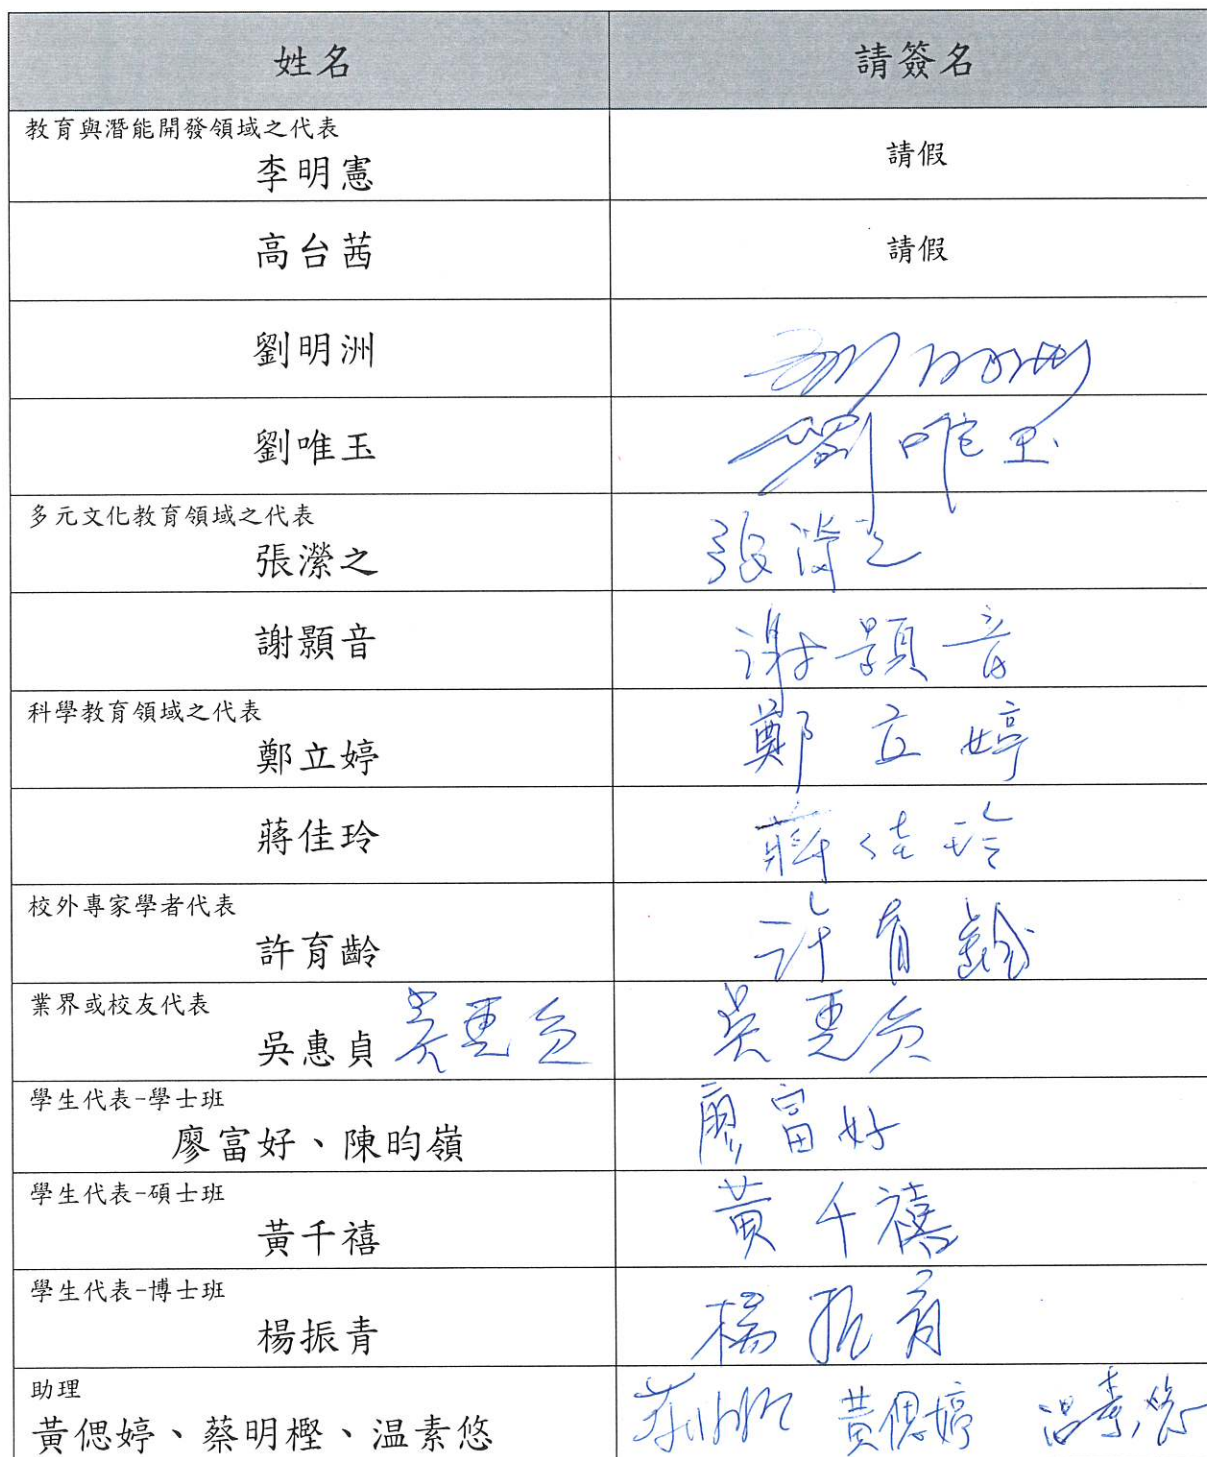 姓名 請簽名
教育與潛能開發領域之代表
李明憲 請假
高台茜 請假
劉明洲 劉明洲
劉唯玉 劉唯玉
多元文化教育領域之代表
張瀠之 張瀠之
謝顥音 謝顥音
科學教育領域之代表
鄭立婷 鄭立婷
蔣佳玲 蔣佳玲
校外專家學者代表
許育齡 許育齡
業界或校友代表
吳惠貞 吳惠貞 吳惠貞
學生代表-學士班
廖富好、陳昀嶺 廖富好
學生代表-碩士班
黃千禧 黃千禧
學生代表-博士班
楊振青 楊振青
助理
黃偲婷、蔡明樫、温素悠 蔡明樫 黃偲婷 温素悠